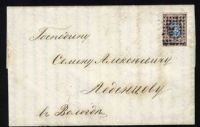 Господину
Семену Алексѣевичу
Леденцову
въ Вологдѣ